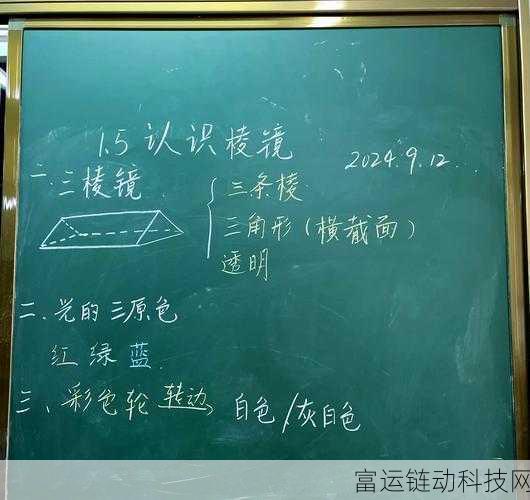 1.5 认识棱镜
2024.9.12...
一.三棱镜 { 三条棱
三角形(横截面)
透明
二.光的三原色
红 绿 蓝
三、彩色轮 转动 白色/灰白色
富运链动科技网